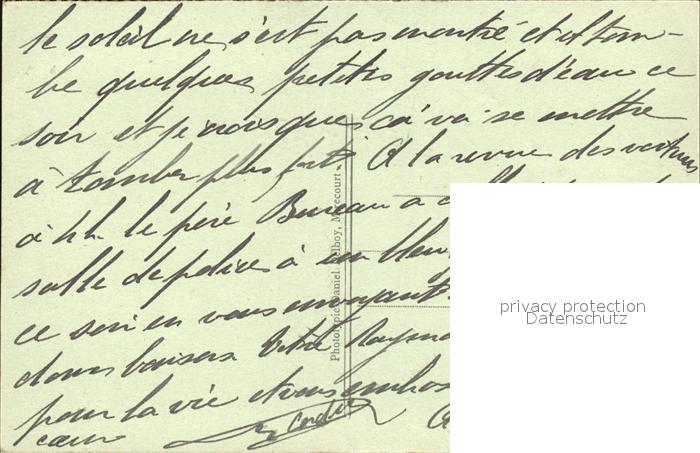 le soleil ne s'est pas montré et il tom-
be quelques petites gouttes d'eau ce
soir et je crois que ça va se mettre
à tomber plus fort. A la revue des
à 4 h. le père Bureau a
salle de police à un bleu
ce soir en vous envoyant
doux baisers Votre Raymond
pour la vie et vous embrasse
cœur
Phototypie Daniel Delboy, Mirecourt
privacy protection
Datenschutz